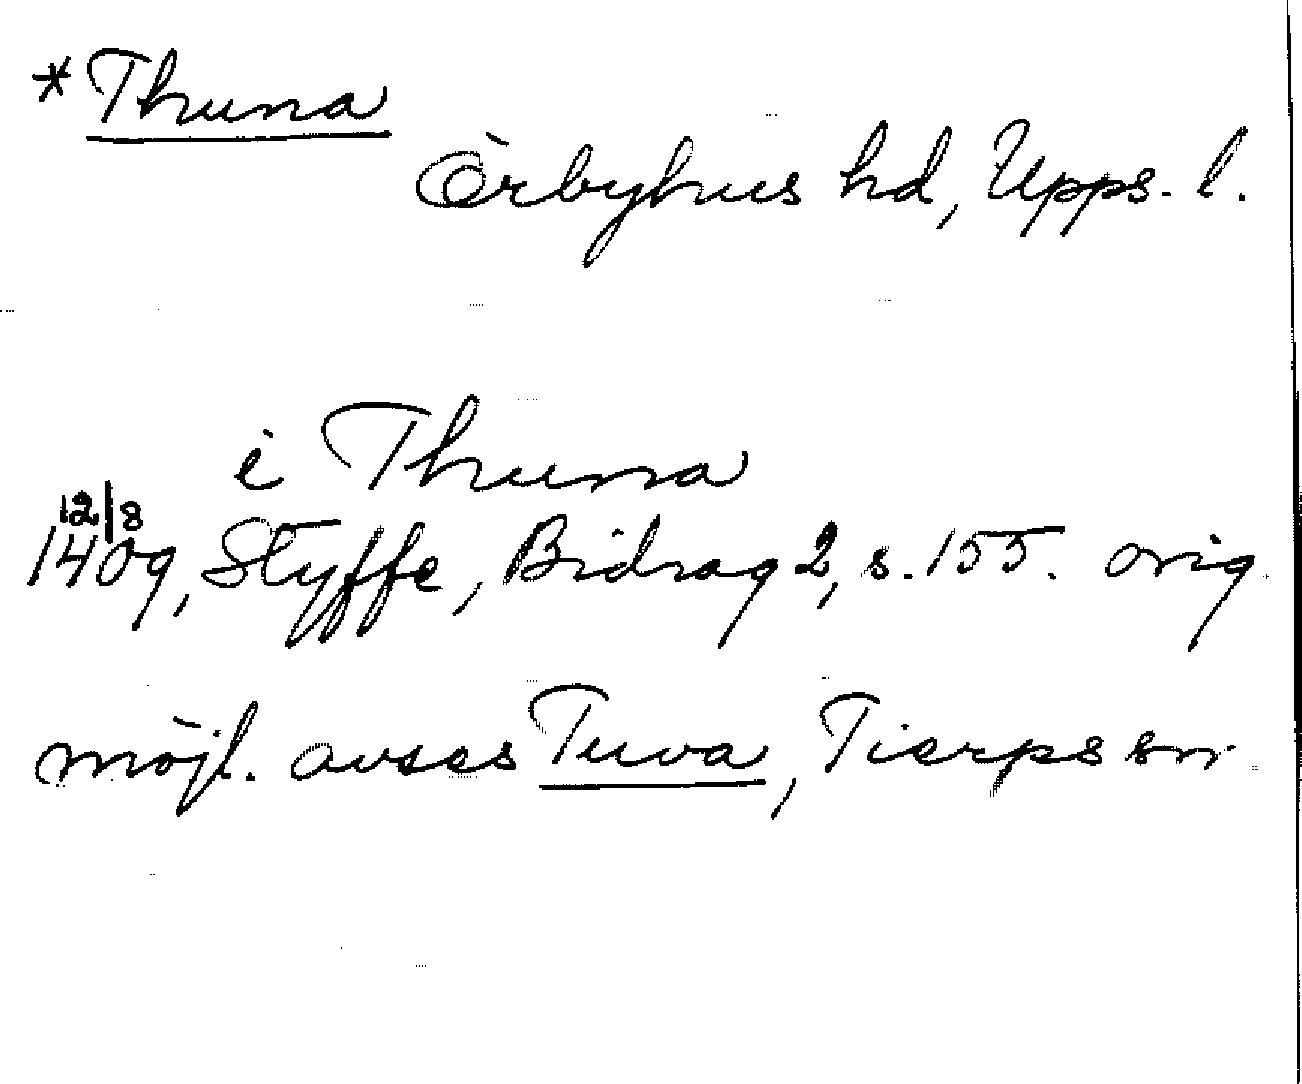 *Thuna
Örbyhus hd, Upps. l.
i Thuna
12/8
1409, Styffe, Bidrag 2, s. 155. orig.
möjl. avses Tuva, Tierps sn